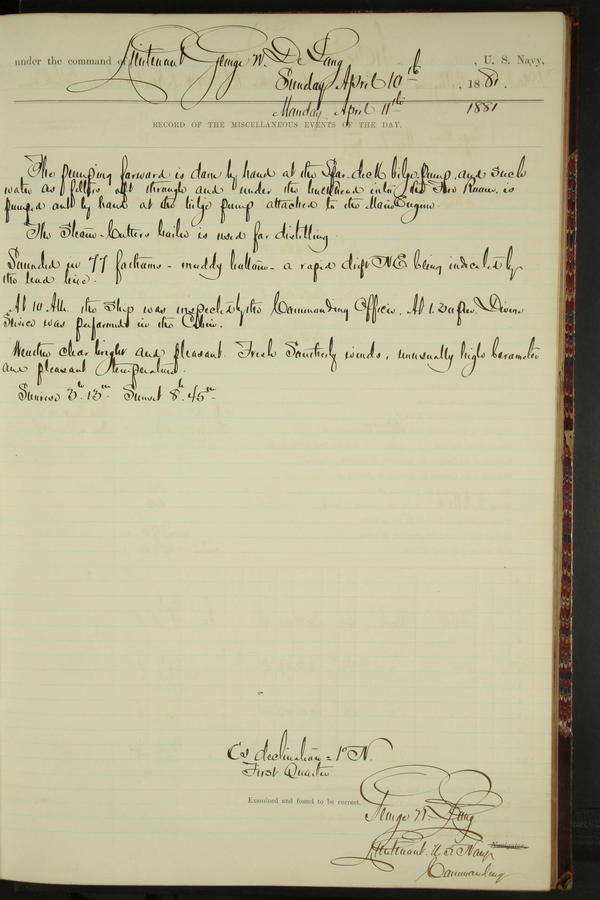 under the command of Lieutenant George W. De Long, U. S. Navy,
Sunday April 10th, 1881.
Monday April 11th 1881
RECORD OF THE MISCELLANEOUS EVENTS OF THE DAY.
The pumping forward is done by hand at the Spar deck bilge pump, and such
water as filters aft through and under the bulkhead into the Fire Room is
pumped out by hand at the bilge pump attached to the Main Engine.
The Steam Cutters boiler is used for distilling.
Sounded in 77 fathoms - muddy bottom - a rapid drift NE being indicated by
the lead line.
At 10 A.M. the ship was inspected by the Commanding Officer. At 1.20 Divine
Service was performed in the Cabin.
Weather clear bright and pleasant. Fresh Southerly winds, unusually high barometer
and pleasant temperature.
Sunrise 3h. 13m Sunset 8h. 45m
C's declination = 1° N.
First Quarter
Examined and found to be correct.
George W. De Long
Lieutenant U.S. Navy Navigator.
Commanding